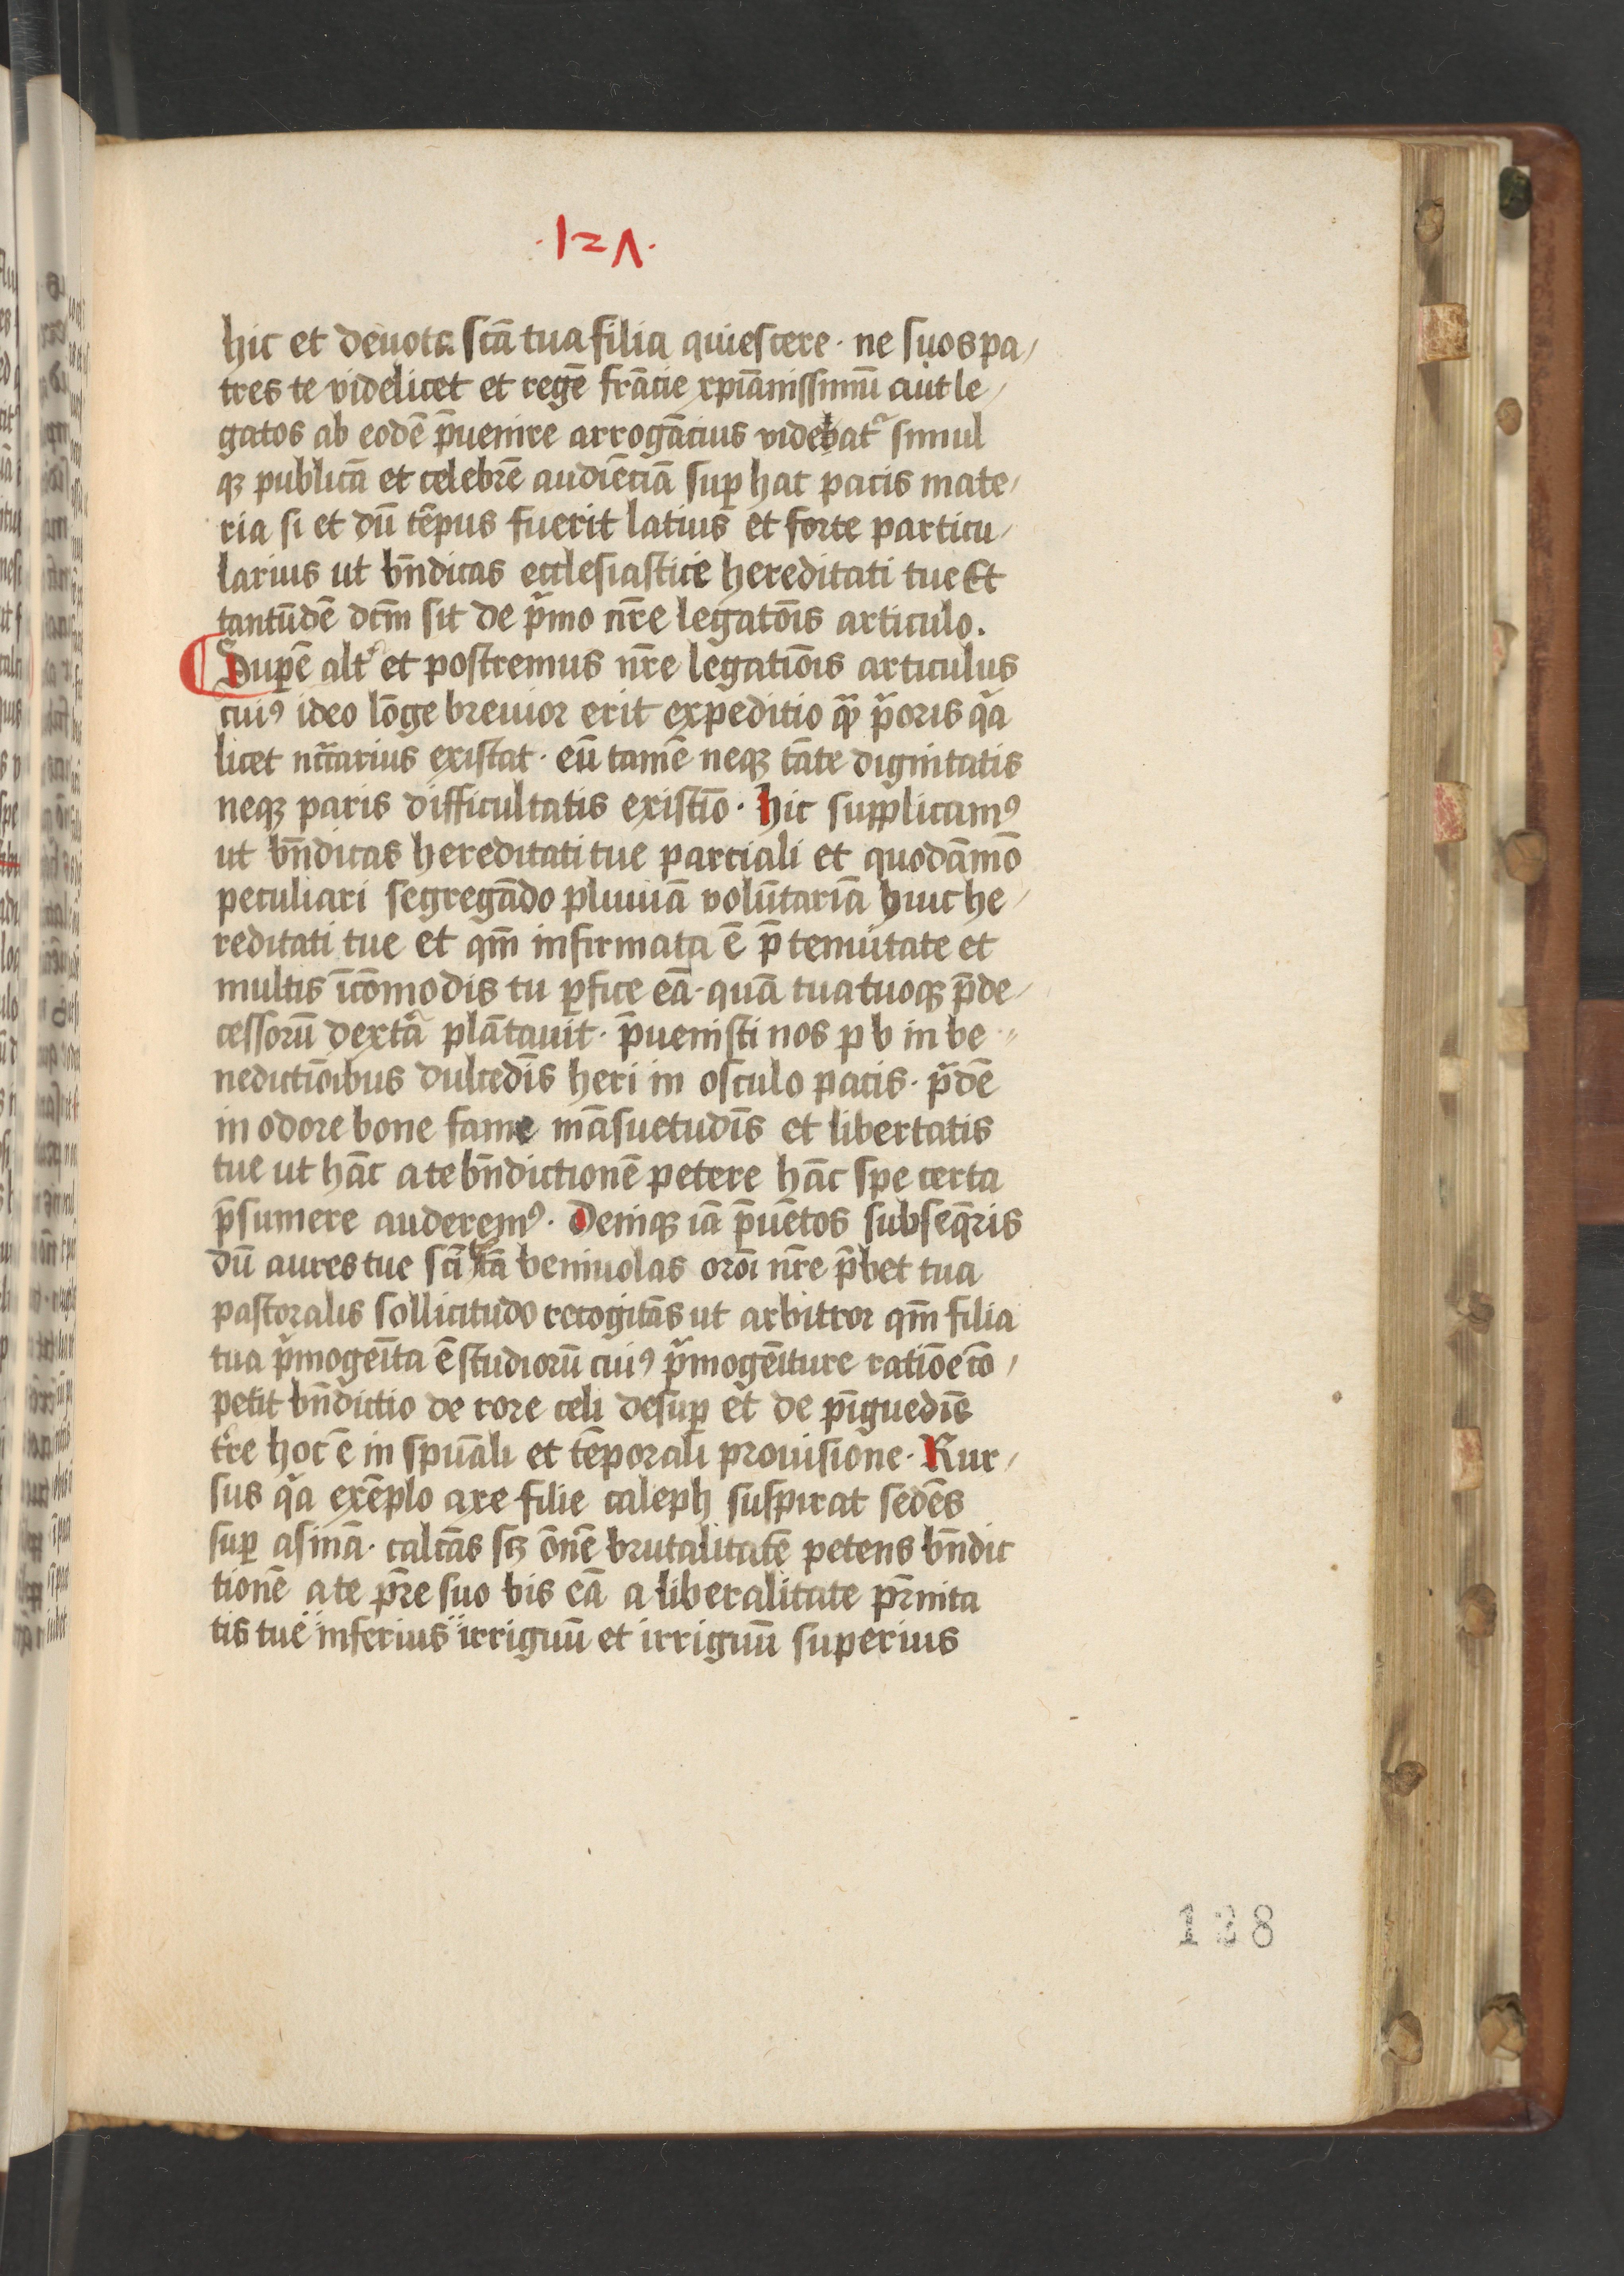 ·127·
hic et deuota scā tua filia quiescere · ne suos pa/
tres te videlicet et regē frācie xpianissimū aut le/
gatos ab eodē p̄uenire arrogācius videbat᷑ simul
qꝫ publicā et celebrē audiēciā suꝑ hac pacis mate/
ria si et dū tēpus fuerit latius et forte particu/
larius ut bn̄dicas ecclesiastice hereditati tue Et
tantūdē dcm̄ sit de pͥmo nr̄e legatōis articulo.
Supē altꝰ et postremus nr̄e legatiōis articulus
cuiꝰ ideo lōge breuior erit expeditio qͣꝫ pͥoris qͣa
licet nccārius existat · eū tamē neqꝫ tāte dignitatis
neqꝫ paris difficultatis existīo · hic supplicamꝰ
ut bn̄dicas hereditati tue parciali et quodāmō
peculiari segregādo pluuiā volūtariā huic he/
reditati tue et qm̄ infirmata ē p̄ tenuitate et
multis īcōmodis tu ꝑfice eā · quā tua tuoqꝫ p̄de/
cessorū dextͣa plātauit · p̄uenisti nos p b in be〃
nedictiōibus dulcedīs heri in osculo pacis · pͥdē
in odore bone fame māsuetudīs et libertatis
tue ut hāc a te bn̄dictionē petere hāc spe certa
p̄sumere auderemꝰ · Deniqꝫ iā p̄uētos subseq̄ris
dū aures tue scī tā beniuolas orōi nr̄e p̄bet tua
pastoralis sollicitudo recogitās ut arbitror qm̄ filia
tua pͥmogeīta ē studiorū cuiꝰ pͥmogēiture ratiōe cō/
petit bn̄dictio de rore celi desuꝑ et de pīguedīe
tr̄e hoc ē in spūali et tēporali prouisione · Rur/
sus qͣa exēplo axe filie caleph suspirat sedēs
suꝑ asinā · calcās scꝫ ōnē brutalitatē petens bn̄dic
tionē a te pr̄e suo bis eā a liberalitate pr̄nita
tis tue inferius irriguū et irriguū superius
128